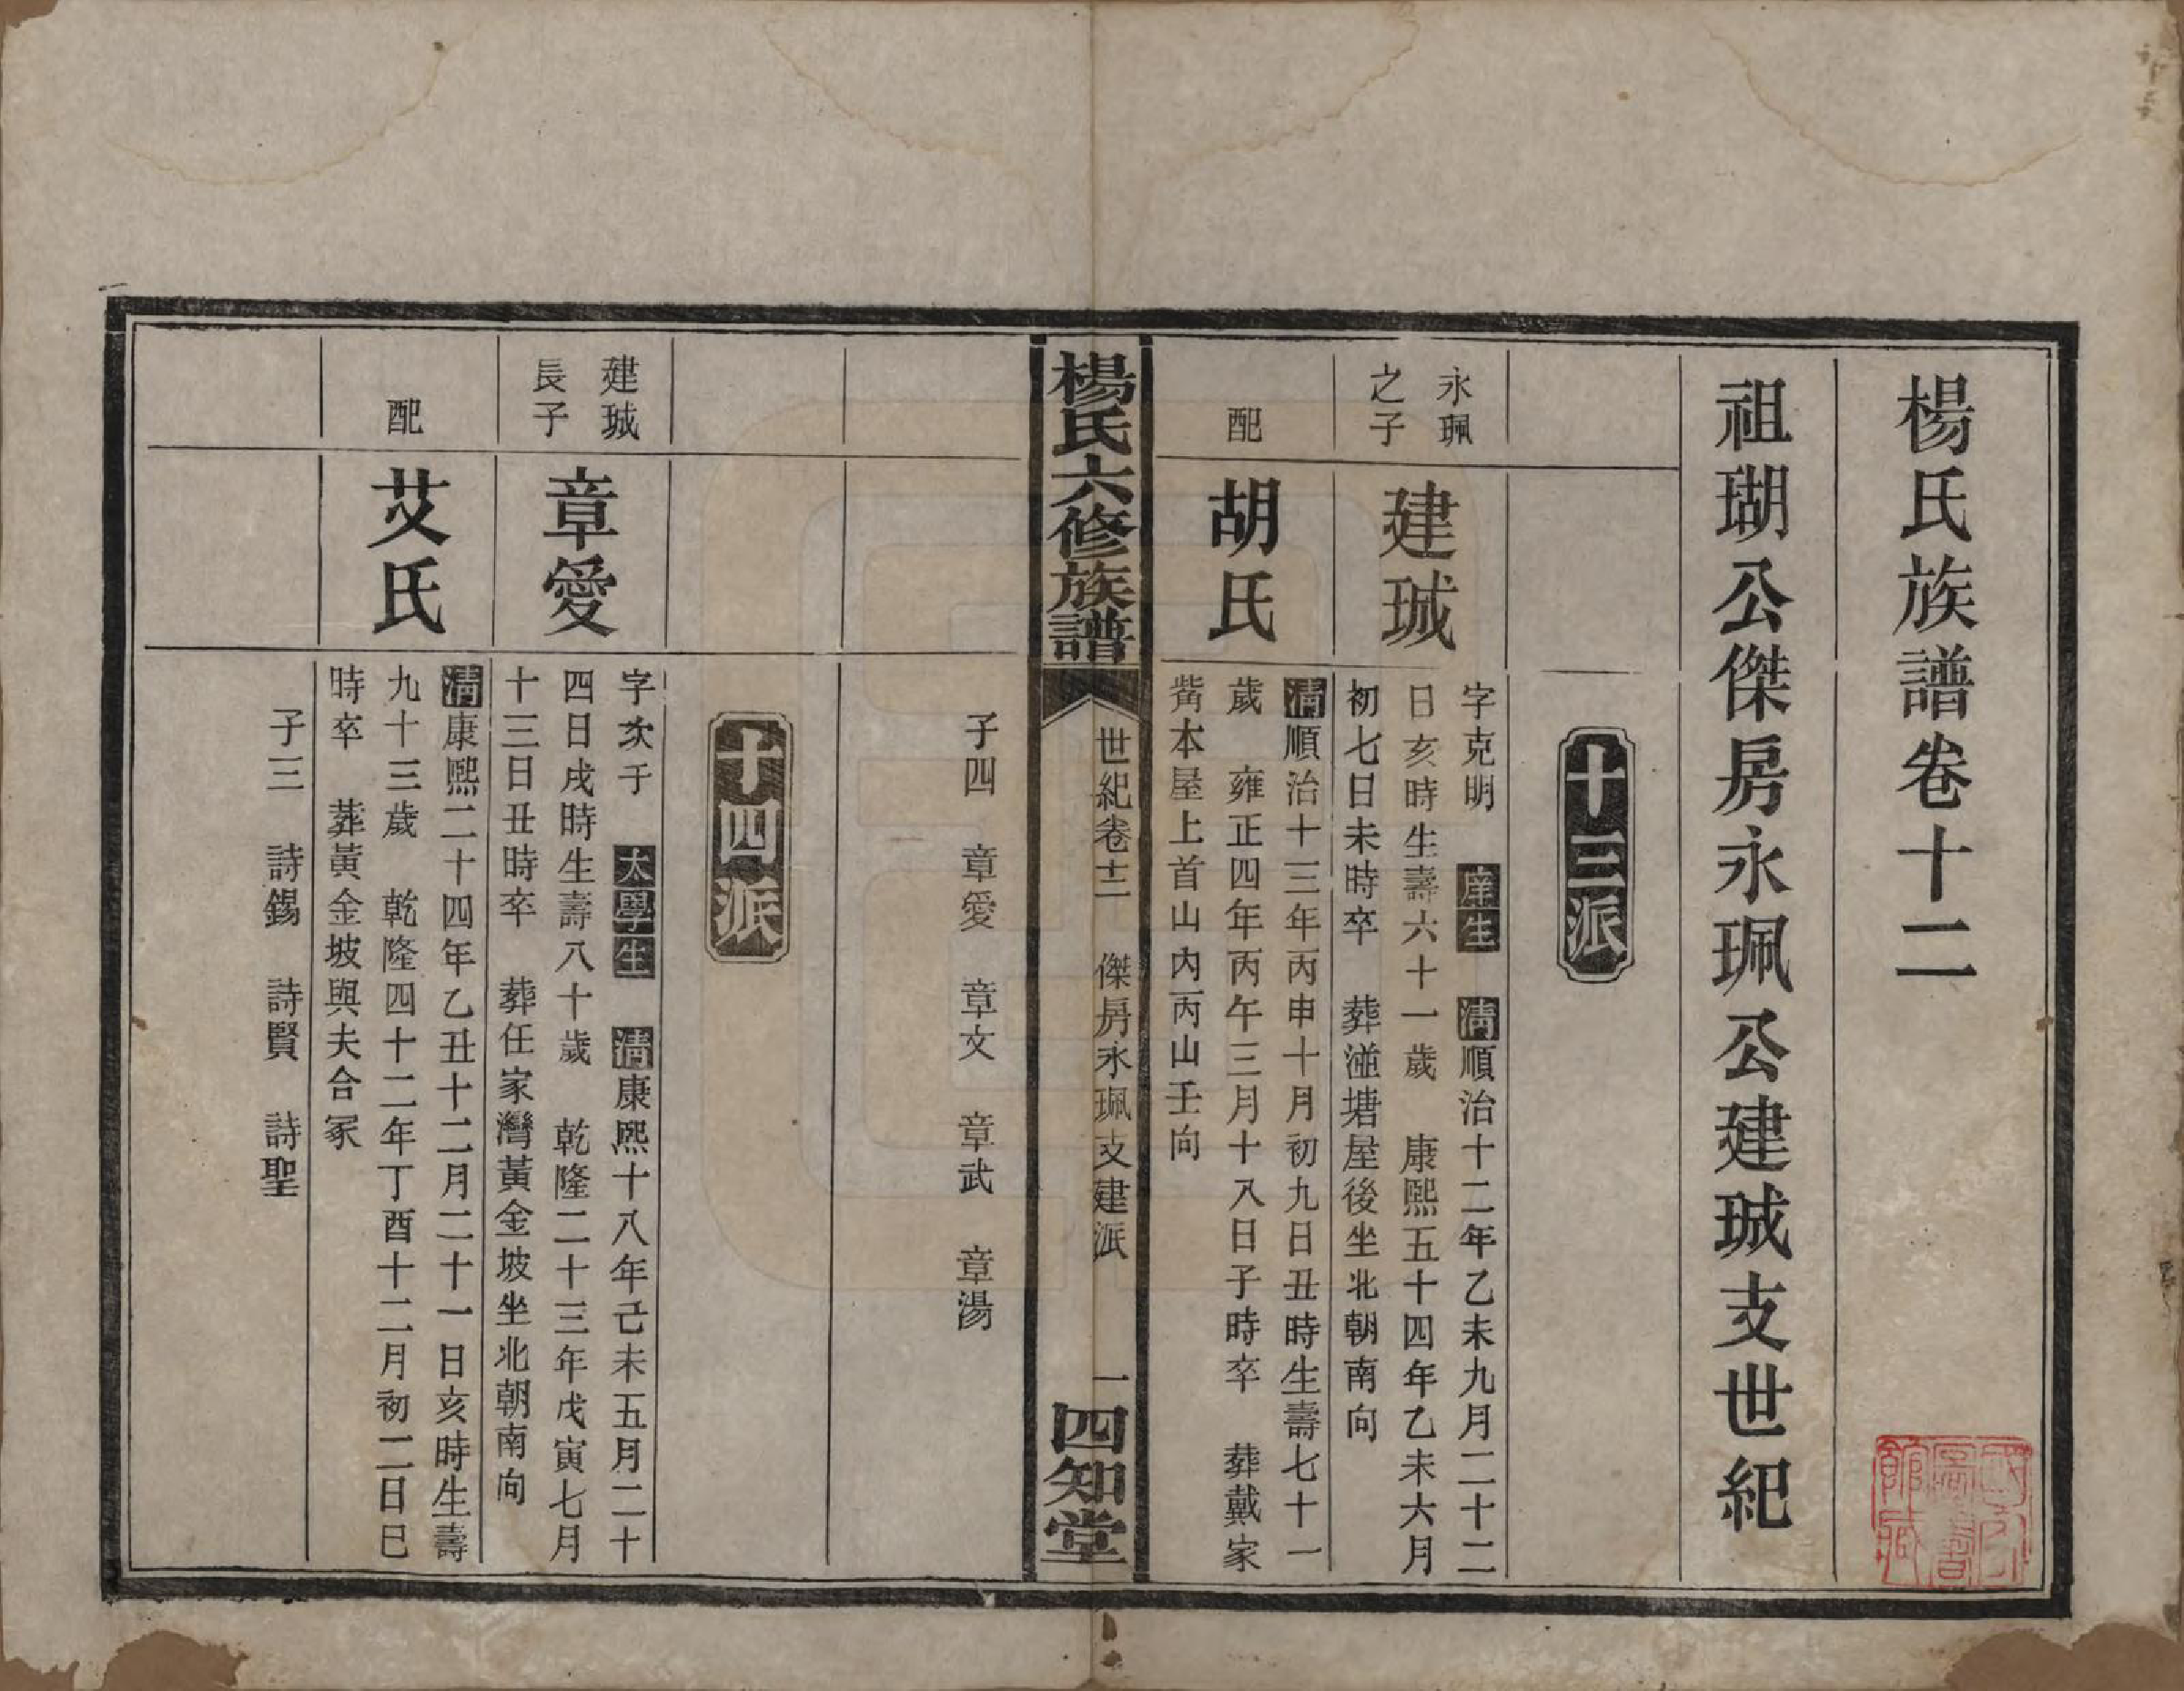 楊氏族譜卷十二
祖瑚公傑房永珮公建珹支世紀
十三派
永珮
之子
建珹
字克明　庠生　清順治十二年乙未九月二十二
日亥時生壽六十一歲　康熙五十四年乙未六月
初七日未時卒　葬湴塘屋後坐北朝南向
配
胡氏
清順治十三年丙申十月初九日丑時生壽七十一
歲　雍正四年丙午三月十八日子時卒　葬戴家
觜本屋上首山內丙山壬向
楊氏六修族譜
世紀卷十二　傑房永珮支建派　一
四知堂
子四　章愛　章文　章武　章湯
十四派
建珹
長子
章愛
字次于　太學生　清康熙十八年己未五月二十
四日戌時生壽八十歲　乾隆二十三年戊寅七月
十三日丑時卒　葬任家灣黃金坡坐北朝南向
配
艾氏
清康熙二十四年乙丑十二月二十一日亥時生壽
九十三歲　乾隆四十二年丁酉十二月初二日巳
時卒　葬黃金坡與夫合冢
子三　詩錫　詩賢　詩聖